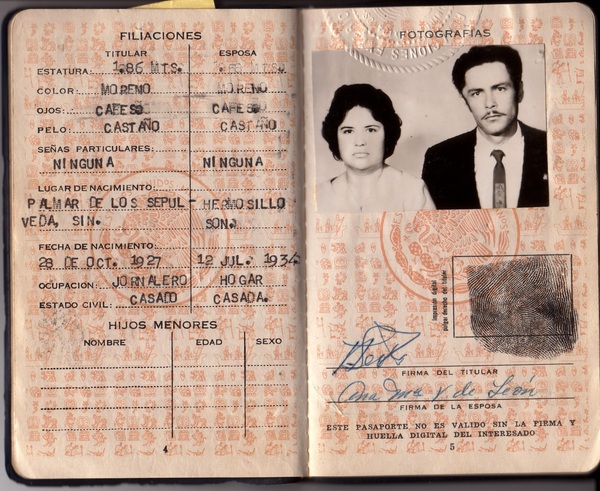 FILIACIONES
TITULAR ESPOSA
ESTATURA: 1.86 MTS. MTS.
COLOR: MORENO MORENO
OJOS: CAFES CAFES
PELO: CASTAÑO CASTAÑO
SEÑAS PARTICULARES:
NINGUNA NINGUNA
LUGAR DE NACIMIENTO:
PALMAR DE LOS SEPUL- HERMOSILLO
VEDA, SIN. SON.
FECHA DE NACIMIENTO:
28 DE OCT. 1927 12 JUL. 1934
OCUPACION: JORNALERO HOGAR
ESTADO CIVIL: CASADO CASADA.
HIJOS MENORES
NOMBRE EDAD SEXO
4
FOTOGRAFIAS
impresion digital
pulgar derecho del titular
FIRMA DEL TITULAR
Ana Ma V de Leon
FIRMA DE LA ESPOSA
ESTE PASAPORTE NO ES VALIDO SIN LA FIRMA Y
HUELLA DIGITAL DEL INTERESADO
5